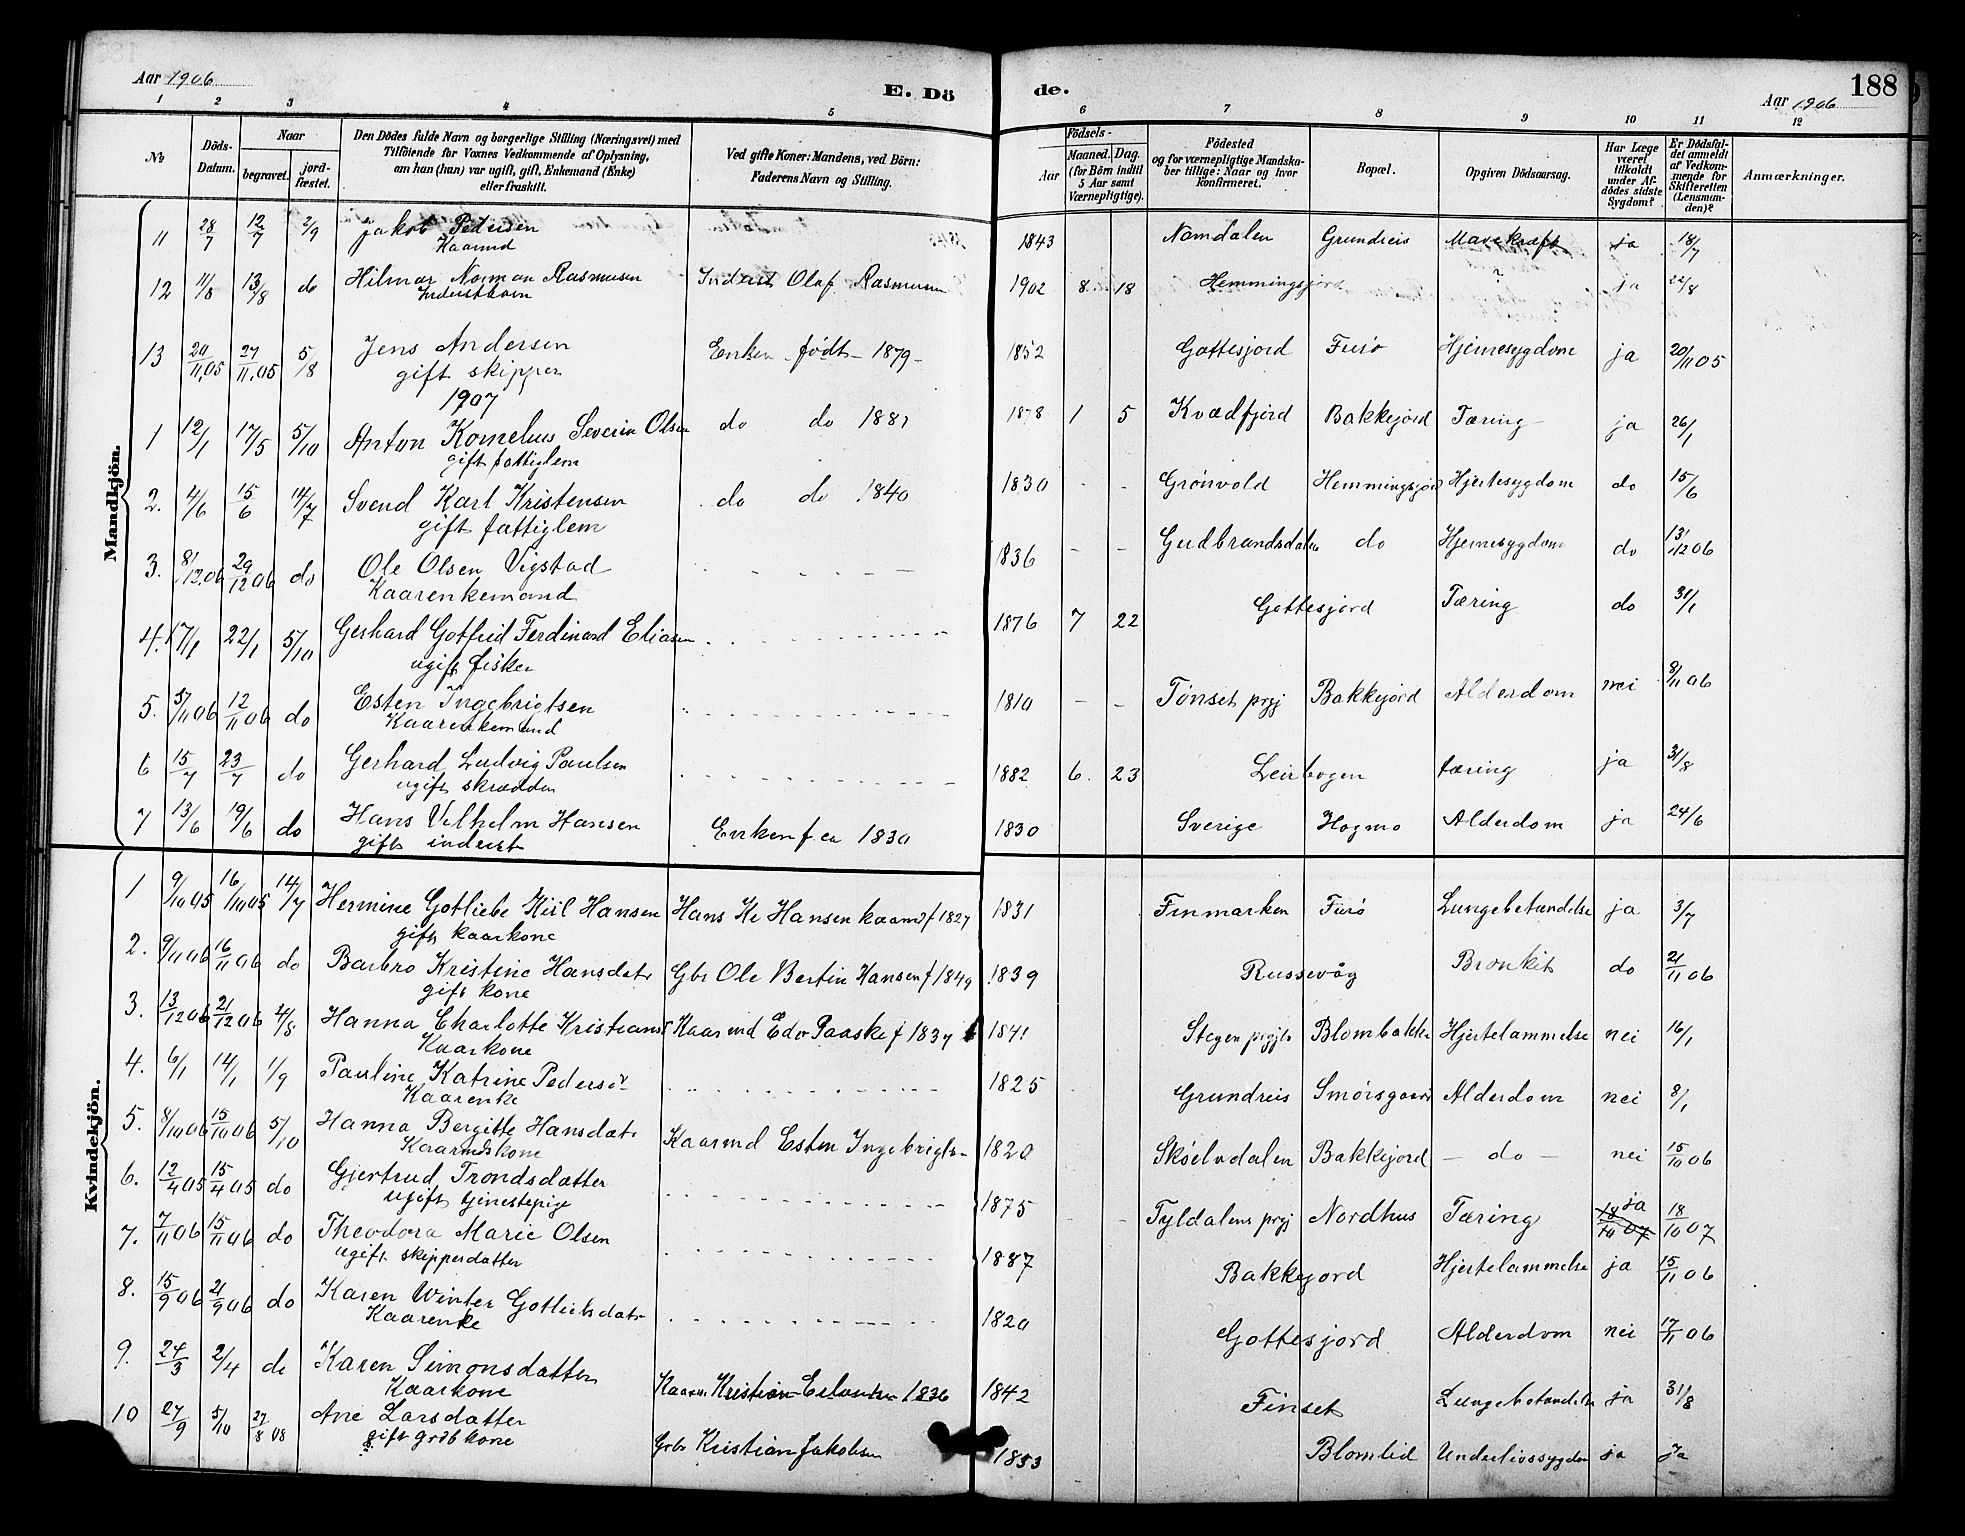 Aar 1906
E. Dö
de.
Aar 1906
188
1 2 3 4 5 6 7 8 9 10 11 12
No
Döds-Datum.
Naar
begravet.
jord-fæstet.
Den Dödes fulde Navn og borgerlige Stilling (Næringsvei) med
Tilföiende for Voxnes Vedkommende af Oplysning,
om han (hun) var ugift, gift, Enkemand (Enke)
eller fraskilt.
Ved gifte Koner: Mandens, ved Börn:
Faderens Navn og Stilling.
Födsels-
Aar
Maaned. Dag.
(for Börn indtil
5 Aar samt
Værnepligtige).
Födested
og for værnepligtige Mandska-
ber tillige: Naar og hvor
konfirmeret.
Bopæl.
Opgiven Dödsaarsag.
Har Læge
været
tilkaldt
under Af-
dödes sidste
Sygdom?
Er Dödsfal-
det anmeldt
af Vedkom-
mende for
Skifteretten
(Lensman-
den)?
Anmærkninger.
Mandkjön.
11 28/7 12/7 2/9 Jakob Pedersen 1843 Namdalen Grundreis Mavekræft ja 18/7
Kaarmd
12 11/8 13/8 do Hilmar Norman Rasmusen Inderst Olaf Rasmusen 1902 8 18 Hemmingsjord ? ja 22/8
Inderstbarn
13 20/11.05 27/11.05 5/18 Jens Andersen Enken født 1879 1852 Gottesjord Furø Hjernesygdom ja 20/11 05
gift skipper
1907
1 12/1 17/5 5/10 Anton Kornelius Severin Olsen do do 1881 1878 1 5 Kvædfjord Bakkejord Tæring ja 26/1
gift fattiglem
2. 4/6 15/6 14/7 Svend Karl Kristensen do do 1840 1830 - - Grønvold Hemmingsjord Hjertesygdom do 15/6
gift fattiglem
3. 8/12.06 29/12 06 do Ole Olsen Vigstad 1836 - - Gudbrandsdalen do Hjernesygdom do 13/12 06
Kaarenkemand
4. 17/1 22/1 5/10 Gerhard Gotfred Ferdinand Eliasen 1876 7 22 Gottesjord Tæring do 31/1
ugift fisker
5. 5/11 06 12/11 06 do Esten Ingebrigtsen 1810 - - Tønset prgj Bakkejord Alderdom nei 8/11 06
Kaarenkemand
6 15/7 23/7 do Gerhard Ludvig Paulsen 1882 6. 23 Leirbogen tæring ja 31/8
ugift skrædder
7 13/6 19/6 do Hans Vilhelm Hansen Enken f ca 1830 1830 Sverige Hogmo Alderdom ja 24/6
gift inderst
Kvindekjön.
1 9/10 05 16/10 05 14/7 Hermine Gotliebe Kiil Hansen Hans Kr Hansen kaarmd f 1827 1831 Finmarken Furø Lungebetændelse ja 3/7
gift kaarkone
2. 9/11 06 16/11 06 do Barbro Kristine Hansdatr Gbr Ole Bertin Hansen f 1849 1839 Russevåg Bronkit do 21/11 06
gift kone
3. 13/12 06 21/12 06 4/8 Hanna Charlotte Kristians Kaarmd Edv Paaske f 1837 1841 Stegen prgjl Blombakken Hjertelammelse nei 16/1
Kaarkone
4. 6/1 14/1 1/9 Pauline Katrine Peders 1825 Grundreis Smørsgaard Alderdom nei 8/1
Kaarenke
5. 8/10 06 15/10 06 5/10 Hanna Bergitte Hansdatr Kaarmd Esten Ingebrigts- 1820 Skøelvdalen Bakkejord - do - nei 15/10 06
Kaarmdskone
6. 12/4 05 15/4 05 do Gjertrud Trondsdatter 1875 - - Tyldalens prgj Nordhus Tæring ja 18/10 07
ugift tjenestepige
7. 7/11 06 15/11 06 do Theodora Marie Olsen 1887 Bakkejord Hjertelammelse ja 15/11 06
ugift skippersdatter
8. 15/9 06 21/9 06 do Karen Winter Gotliebsdatr 1820 Gottesjord Alderdom nei 17/11 06
Kaarenke
9. 24/3 2/4 do Karen Simonsdatter Kristian 1836 1842 Finset Lungebetændelse ja 31/8
Kaarkone
10 27/9 5/10 27/8 08 Ane Larsdatter Grbr Kristian Jakobsen 1853 Blomlid Underlivssygdom ja ja
gift grdbkone